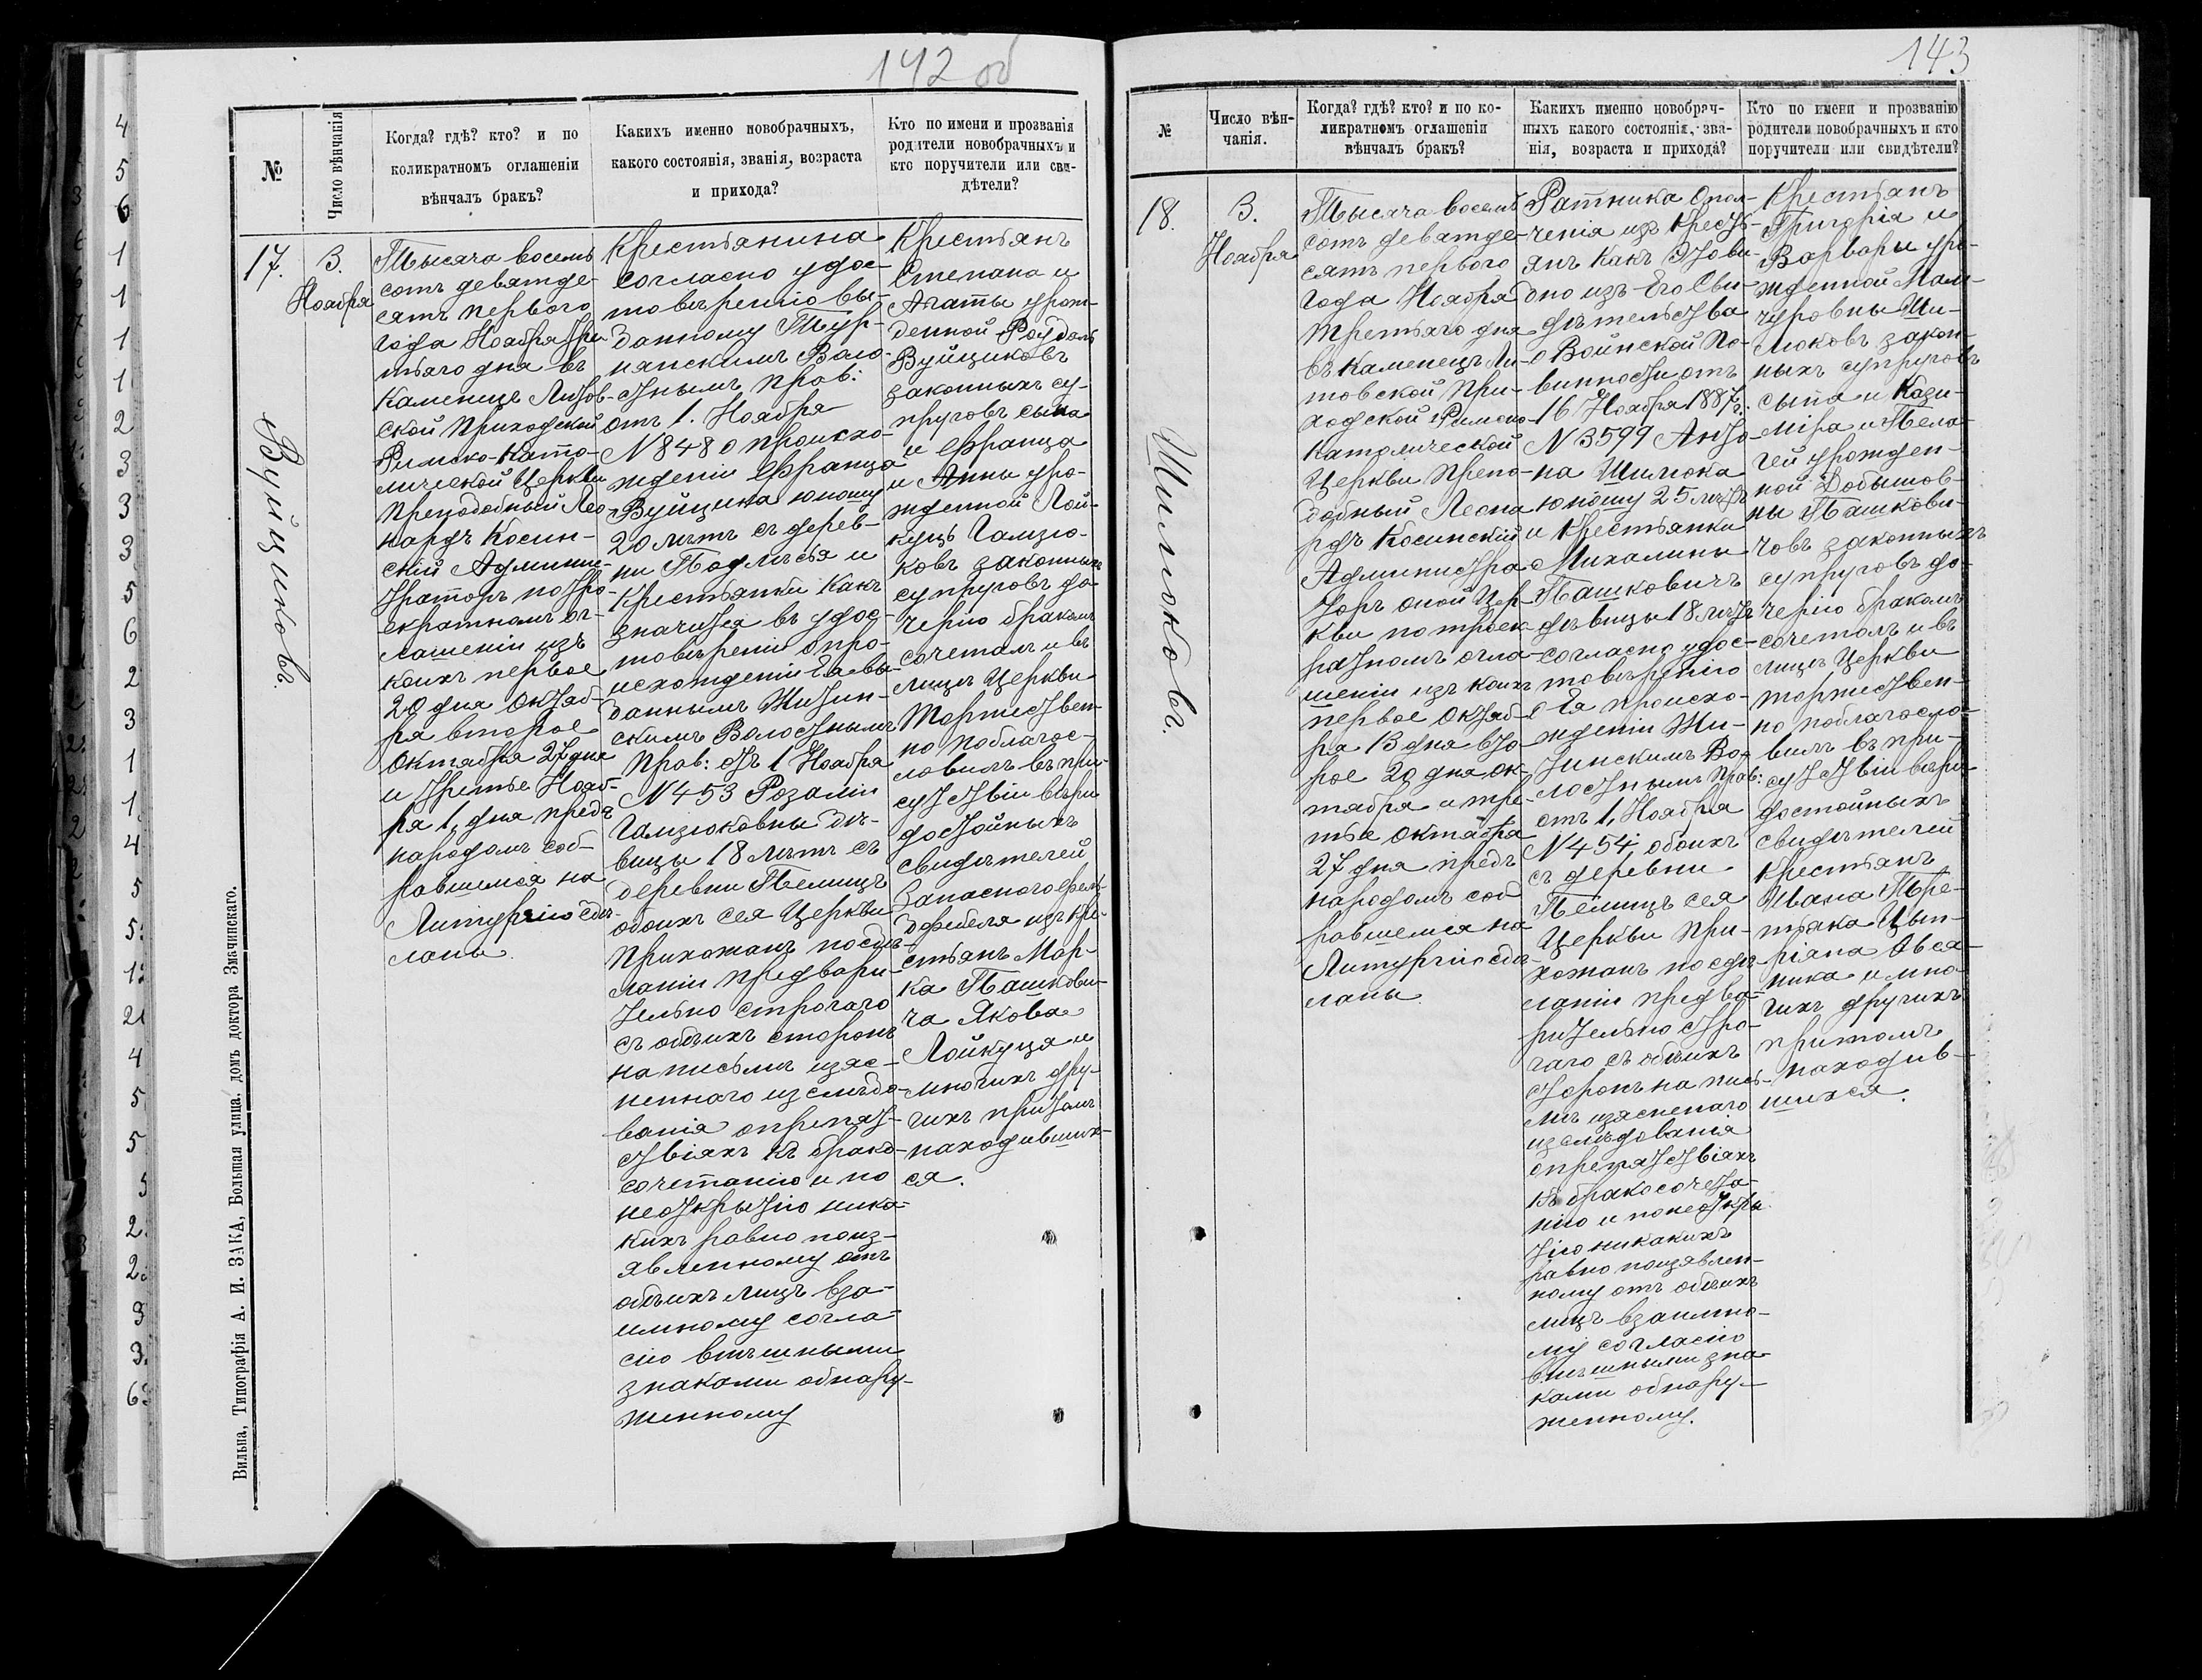 142 об
№
Число вѣнчанія
Когда? гдѣ? кто? и по
коликратномъ оглашеніи
вѣнчалъ бракъ?
Какихъ именно новобрачныхъ,
какого состоянія, званія, возраста
и прихода?
Кто по имени и прозванія
родители новобрачныхъ и
кто поручители или сви-
дѣтели?
17.
Вуйциковъ.
3.
Ноября
Тысяча восемь
сотъ девятде-
сятъ перваго
года Ноября тре
тьяго дня въ
Каменцѣ Литов-
ской Приходской
Римско-Като-
лической Церкви
Преподобный Лео
нардъ Косин-
скій Админи-
страторъ по тро-
екратномъ ог-
лашеніи изъ
коихъ первое
20 дня Октяб-
ря второе
Октября 27 дня
и третье Нояб-
ря 1, дня предъ
народомъ соб-
равшемся на
Литургію сдѣ-
ланы.
Крестьянина
согласно удос-
товѣренію вы-
данному
Воло-
стнымъ Прав:
отъ 1. Ноября
N 848 о происхо-
жденіи Франца
Вуйцика юношу
20 лѣтъ съ дерев-
ни Подлѣсья и
Крестьянки какъ
значится въ удос-
товѣреніи о про-
исхожденіи Ея вы-
даннымъ Жизин-
скимъ Волостнымъ
Прав: отъ 1 Ноября
N 453 Розаліи
Гамзюковны дѣ-
вицы 18 лѣтъ съ
деревни Пелищъ
обоихъ сея Церкви
Прихожанъ по сдѣ-
ланіи предвари-
тельно строгаго
съ обѣихъ сторонъ
на письмѣ изяс-
неннаго изслѣдо-
ванія о препят-
ствіяхъ къ брако-
сочетанію и по
неоткрытію ника-
кихъ равно поиз-
явленному отъ
обѣихъ лицъ вза-
имному согла-
сію внѣшными
знаками обнару-
женному
Крестьянъ
Степана и
Агаты урож-
денной
Вуйциковъ
законныхъ су-
пруговъ сына
и Франца
и Анны уро-
жденной Лой-
куцъ Гамзю-
ковъ законныхъ
супруговъ до-
черію бракомъ
сочеталъ и въ
лицѣ Церкви
Торжествен-
но поблагос-
ловилъ въ при-
сутствіи вѣри
достойныхъ
свидѣтелей
Запаснаго фель-
дфебеля изъ кре-
стьянъ Мар-
ка Пашкови-
ча Якова
Лойкуця и
многихъ дру-
гихъ притомъ
находивших-
ся.
Вильна, Типографія А. И. ЗАКА, Большая улица, домъ доктора Змачинскаго.
143
№
Число вѣн-
чанія.
Когда? гдѣ? кто? и по ко-
ликратномъ оглашеніи
вѣнчалъ бракъ?
Какихъ именно новобрач-
ныхъ какого состоянія, зва-
нія, возраста и прихода?
Кто по имени и прозванію
родители новобрачныхъ и кто
поручители или свидѣтели?
18.
Шилюковъ.
3.
Ноября
Тысяча восемь
сотъ девятде-
сятъ перваго
года Ноября
третьяго дня
въ Каменецъ Ли-
товской При-
ходской Римско
католической
Церкви Препо-
добный Леона
рдъ Косинскій
Администра-
торъ оной Цер-
кви по троек-
ратномъ огла-
шеніи изъ коихъ
первое Октяб-
ря 13 дня вто-
рое 20 дня Ок-
тября и тре-
тье Октября
27 дня предъ
народомъ соб
равшемся на
Литургію сдѣ-
ланы.
Ратника Опол-
ченія изъ Кресть-
янъ какъ это ви-
дно изъ Его Сви-
дѣтельства
о Воинской По-
винности отъ
16 Ноября 1887 г.
N 3599 Анто-
на Шилюка
юношу 25 лѣтъ
и Крестьянки
Михалины
Пашковичъ
дѣвицы 18 лѣтъ
согласно удос-
товѣренію
о Ея происхо-
жденіи Жи-
зинскимъ Во-
лостнымъ Прав:
отъ 1, Ноября
N 454, обоихъ
съ деревни
Пелищъ сея
Церкви При-
хожанъ по сдѣ-
ланіи предва-
рительно стро-
гаго съ обѣихъ
сторонъ на пись-
мѣ изясненаго
изслѣдованія
о препятствіяхъ
къ бракосочета-
нію и по неоткры
тію никакихъ
равно поизявлен-
ному отъ обѣихъ
лицъ взаимно-
му согласію
внѣшными зна-
ками обнару-
женному.
Крестьянъ
Григорія и
Варвары уро-
жденной
Ши-
люковъ закон-
ныхъ супруговъ
сына и Кази-
міра и Пела-
гей урожден-
ной Добышов-
ны Пашкови-
човъ законныхъ
супруговъ до-
черію бракомъ
сочеталъ и въ
лицѣ Церкви
торжествен-
но поблагосло-
вилъ въ при-
сутствіи вѣри-
достойныхъ
свидѣтелей
Крестьянъ
Ивана Тре-
тяка Цып-
ріана Овся-
ника и мно-
гихъ другихъ
притомъ
находив-
шихся.